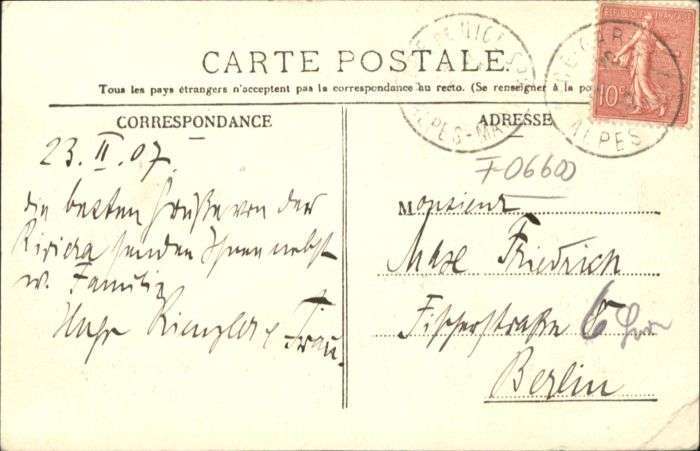 CARTE POSTALE
Tous les pays étrangers n'acceptent pas la correspondance au recto. (Se renseigner à la po
CORRESPONDANCE
23. II. 07.
die besten Grüße von der
Riviera senden Ihnen nebst
w. Familie
Hugo & Frau.
ADRESSE
F06600
Monsieur
Max Friedrich
Fischerstraße 6
Berlin
RÉPUBLIQUE FRANÇAISE
10c
NICE
ALPES-MA
ALPES